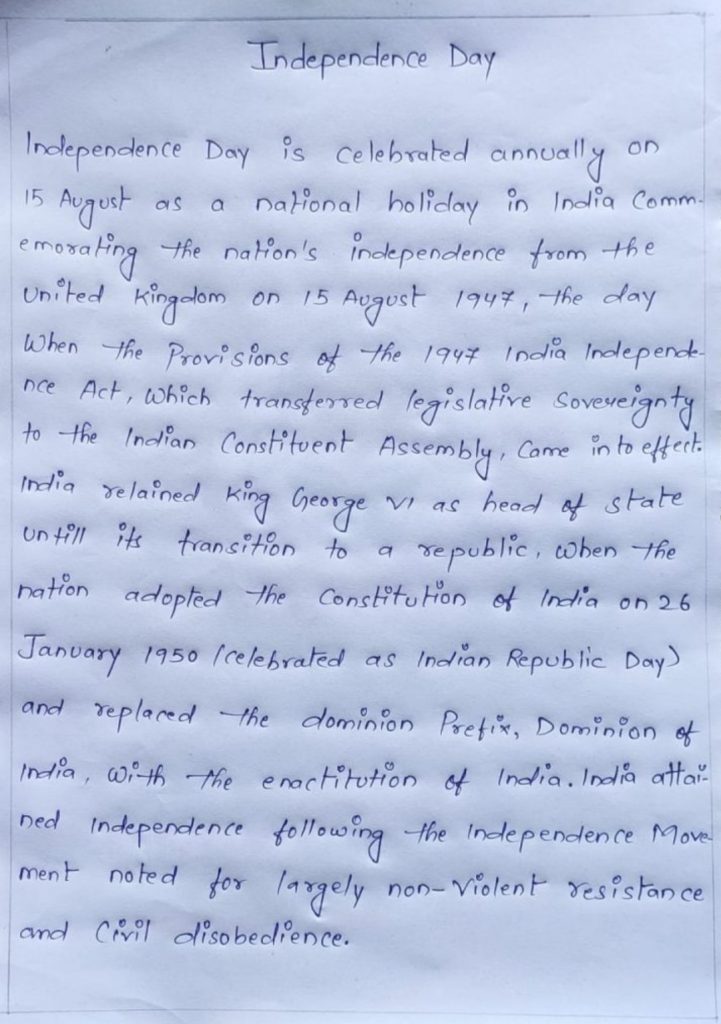 Independence Day
Independence Day is celebrated annually on
15 August as a national holiday in India Comm-
emorating the nation's independence from the
United Kingdom on 15 August 1947, the day
When the Provisions of the 1947 India Independe-
nce Act, Which transferred legislative Sovereignty
to the Indian Constituent Assembly, Came in to effect.
India relained King George VI as head of state
untill its transition to a republic, when the
nation adopted the Constitution of India on 26
January 1950 (celebrated as Indian Republic Day)
and replaced the dominion Prefix, Dominion of
India, with the enactitution of India. India attai-
ned independence following the Independence Move-
ment noted for largely non-violent resistance
and Civil disobedience.